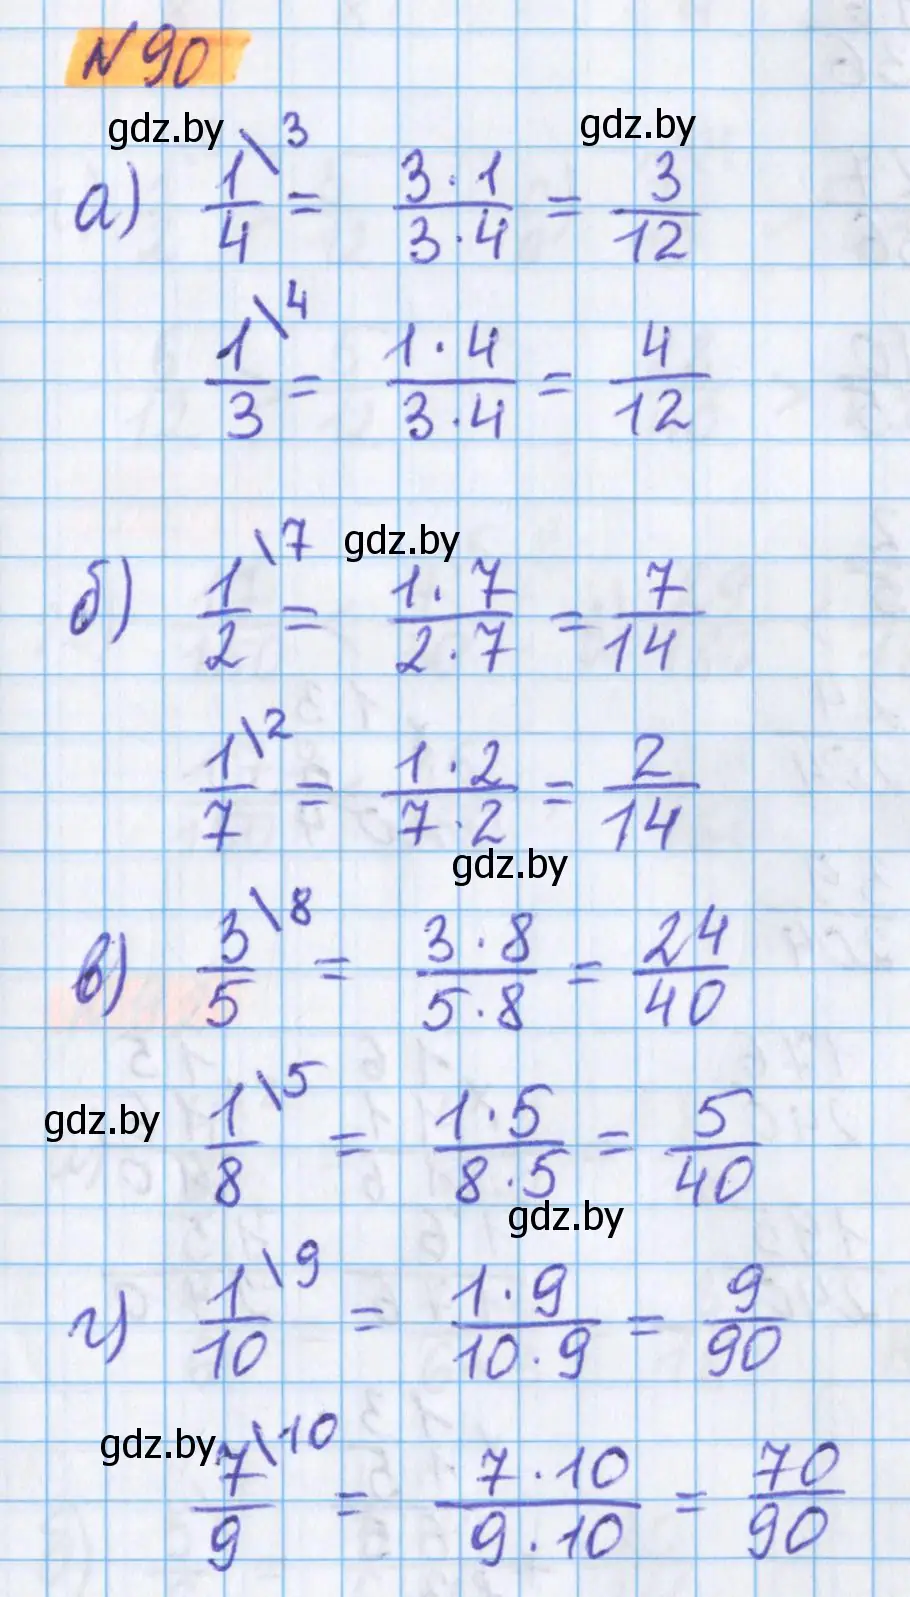 № 90
gdz.by gdz.by
а) 1/4 \3 = 3·1/3·4 = 3/12
1/3 \4 = 1·4/3·4 = 4/12
gdz.by
б) 1/2 \7 = 1·7/2·7 = 7/14
1/7 \2 = 1·2/7·2 = 2/14
gdz.by
в) 3/5 \8 = 3·8/5·8 = 24/40
gdz.by
1/8 \5 = 1·5/8·5 = 5/40
gdz.by
г) 1/10 \9 = 1·9/10·9 = 9/90
gdz.by
7/9 \10 = 7·10/9·10 = 70/90